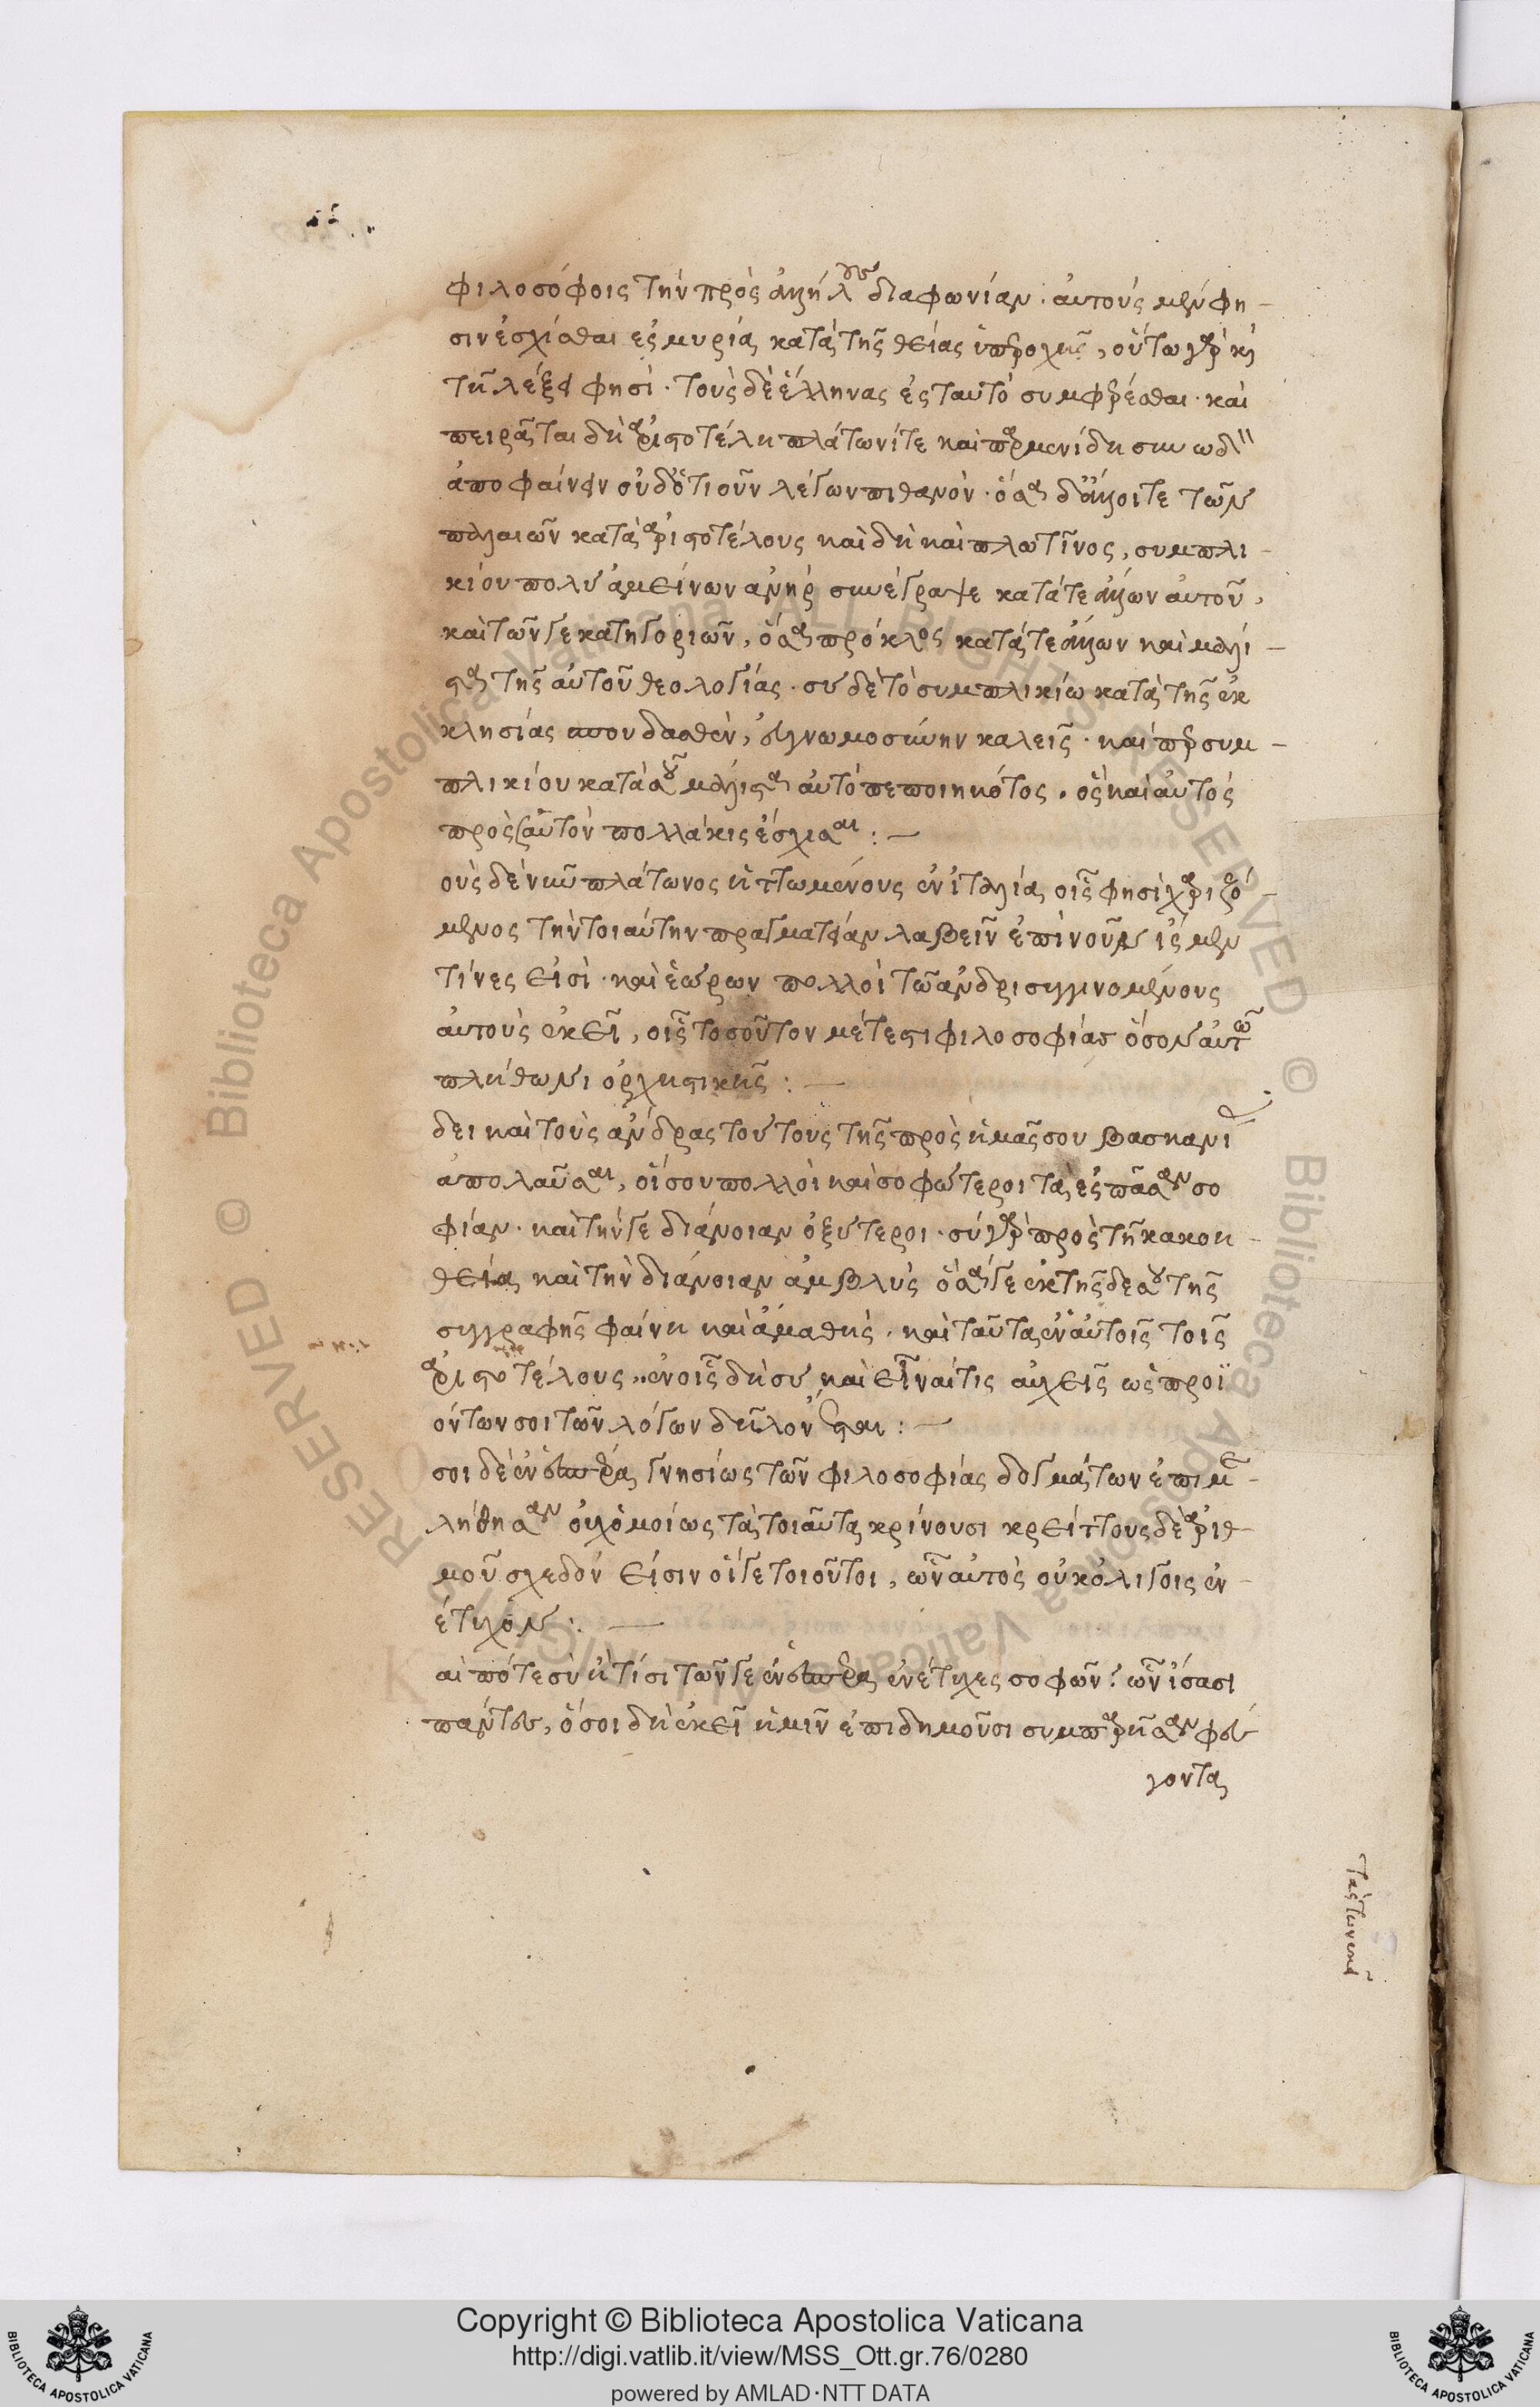 φιλοσόφοις τὴν πρὸς ἀλλήλους διαφωνίαν. αὐτοὺς μὲν φη-
σιν ἐσχίσθαι ἐς μυρία κατὰ τῆς θείας ὑπεροχῆς, οὕτω γὰρ καὶ
τῇ λέξει φησί. τοὺς δὲ ἕλληνας ἐς ταυτὸ συμφέρεσθαι. καὶ
πειρᾶται δὴ ἀριστοτέλη πλάτωνί τε καὶ παρμενίδη συνωδὰ
ἀποφαίνειν οὐδ' ὁτιοῦν λέγων πιθανόν. ὅσα δ' ἄλλοι τε τῶν
παλαιῶν κατὰ ἀριστοτέλους καὶ δὴ καὶ πλωτῖνος, συμπλι-
κίου πολὺ ἀμείνων ἀνὴρ συνέγραψε κατά τε ἄλλων αὐτοῦ,
καὶ τῶν γε κατηγοριῶν, ὅσα πρόκλος κατά τε ἄλλων καὶ μάλι-
στα τῆς αὐτοῦ θεολογίας. σὺ δὲ τὸ συμπλικίω κατὰ τῆς ἐκ
κλησίας σπουδασθὲν, εὐγνωμοσύνην καλεῖς. καίπερ συμ-
πλικίου κατὰ σοῦ μάλιστα αὐτὸ πεποιηκότος. ὃς καὶ αὐτὸς
πρὸς ταυτὸν πολλάκις ἔσχισαι: —
οὓς δὲ νῦν πλάτωνος ἡττωμένους ἐν ἰταλία, οἷς φησὶ χαριζό-
μενος τὴν τοιαύτην πραγματείαν λαβεῖν ἐπὶ νοῦν ἴσμεν
τίνες εἰσί. καὶ ἑώρων πολλοὶ τῶ ἀνδρὶ συγγινομένους
αὐτοὺς ἐκεῖ, οἷς τοσοῦτον μέτεστι φιλοσοφίας ὅσον αὐτῶ
πλήθωνι ὀρχηστικῆς: —
δεῖ καὶ τοὺς ἄνδρας τούτους τῆς πρὸς ἡμᾶς σου βασκανίας
ἀπολαῦσαι, οἵ σου πολλοὶ καὶ σοφώτεροι τὰ ἐς πᾶσαν σο
φίαν. καὶ τήν γε διάνοιαν ὀξύτεροι. σὺ γὰρ πρὸς τῆ κακοη-
θεία καὶ τὴν διάνοιαν ἀμβλὺς ὅσα γε ἐκ τῆσδε σου τῆς
συγγραφῆς φαίνη καὶ ἀμαθής. καὶ ταῦτα ἐν αὐτοῖς τοῖς
ἀριστοτέλους, ἐν οἷς δὴ σὺ καὶ εἶναί τις αὐχεῖς ὡς προϊ
όντων σοι τῶν λόγων δῆλον ἔσται: —
σοι δὲ ἐν ἑσπέρα γνησίως τῶν φιλοσοφίας δογμάτων ἐπεμε-
λήθησαν οὐχ ὁμοίως τὰ τοιαῦτα κρίνουσι κρείττους δὲ ἀριθ-
μοῦ σχεδόν εἰσιν οἵ γε τοιοῦτοι, ὧν αὐτὸς οὐκ ὀλίγοις ἐν-
έτυχον: —
αἲ πότε σὺ ἢ τίσι τῶν γε ἐν ἑσπέρα ἐνέτυχες σοφῶν; ὧν ἴσασι
πάντες, ὅσοι δὴ ἐκεῖ ἡμῖν ἐπιδημοῦσι συμπαρῆσαν φεύ
γοντα
τὰς τῶν ἐκεῖ
Copyright © Biblioteca Apostolica Vaticana
http://digi.vatlib.it/view/MSS_Ott.gr.76/0280
powered by AMLAD·NTT DATA